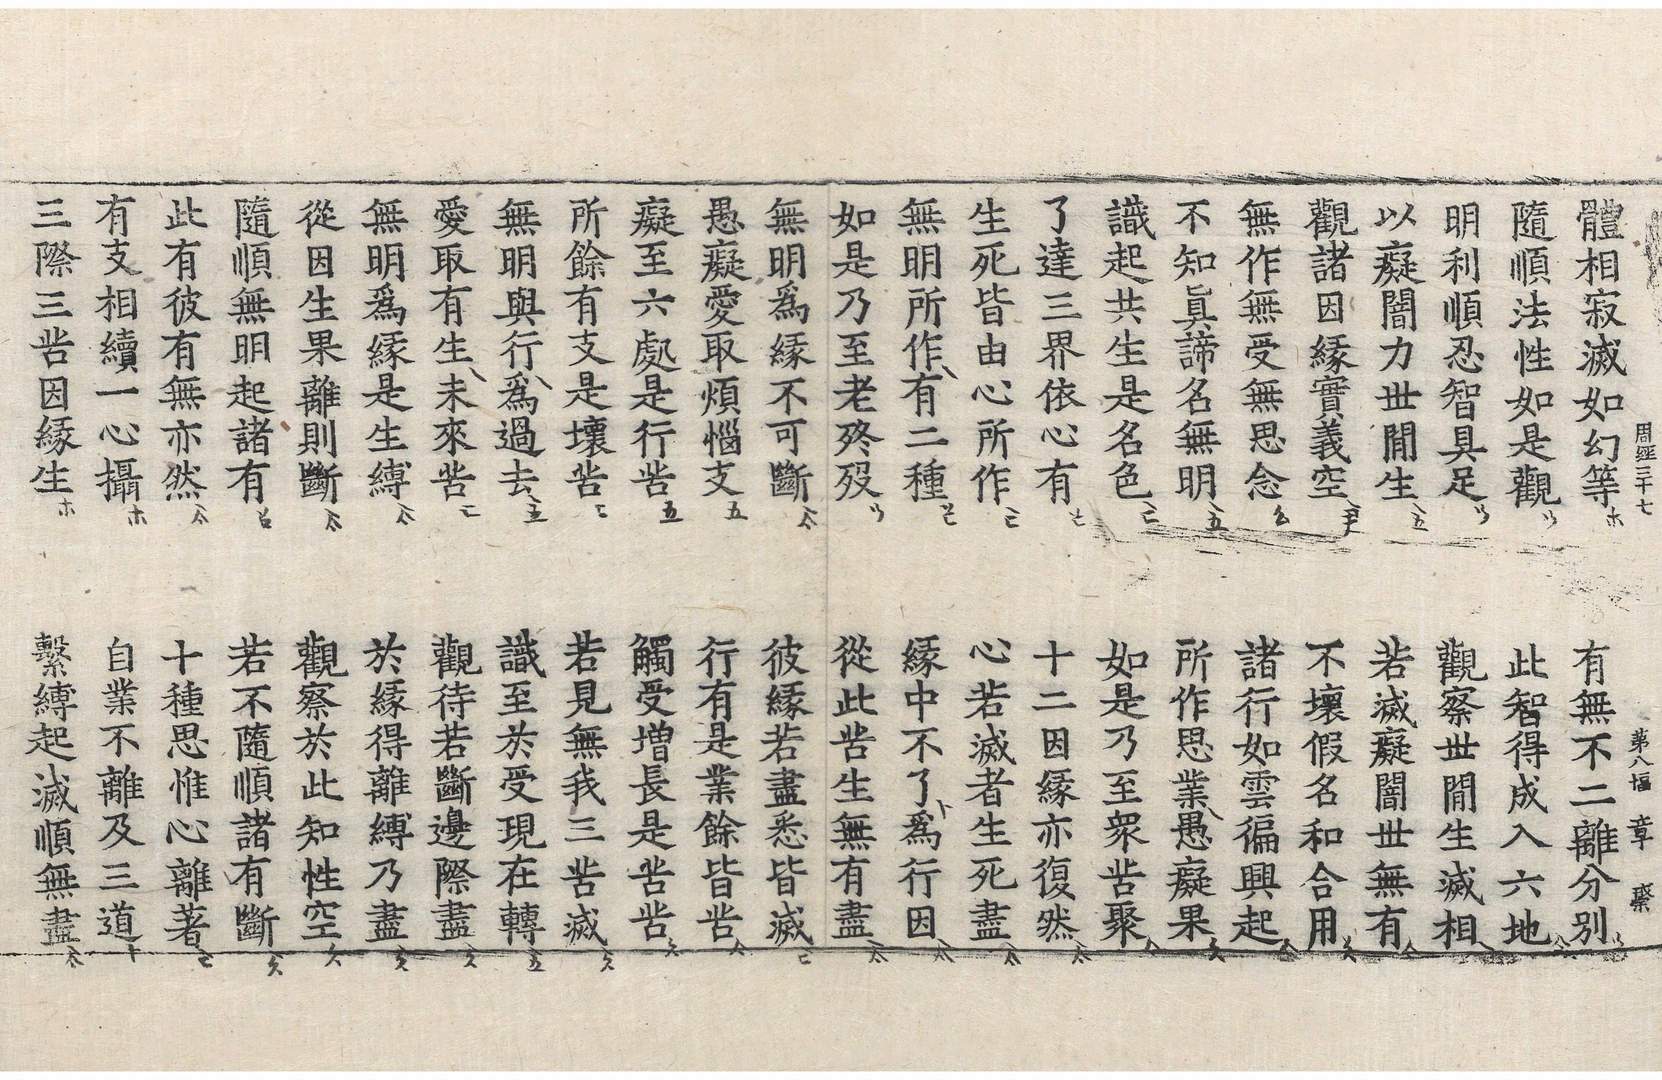 周經三十七 第八幅 章
體相寂滅如幻等 有無不二離分別
隨順法性如是觀 此智得成入六地
明利順忍智具足 觀察世間生滅相
以癡闇力世間生 若滅癡闇世無有
觀諸因緣實義空 不壞假名和合用
無作無受無思念 諸行如雲徧興起
不知眞諦名無明 所作思業愚癡果
識起共生是名色 如是乃至衆苦聚
了達三界依心有 十二因緣亦復然
生死皆由心所作 心若滅者生死盡
無明所作有二種 緣中不了爲行因
如是乃至老終歿 從此苦生無有盡
無明爲緣不可斷 彼緣若盡悉皆滅
愚癡愛取煩惱支 行有是業餘皆苦
癡至六處是行苦 觸受增長是苦苦
所餘有支是壞苦 若見無我三苦滅
無明與行爲過去 識至於受現在轉
愛取有生未來苦 觀待若斷邊際盡
無明爲緣是生縛 於緣得離縛乃盡
從因生果離則斷 觀察於此知性空
隨順無明起諸有 若不隨順諸有斷
此有彼有無亦然 十種思惟心離著
有支相續一心攝 自業不離及三道
三際三苦因緣生 繫縛起滅順無盡